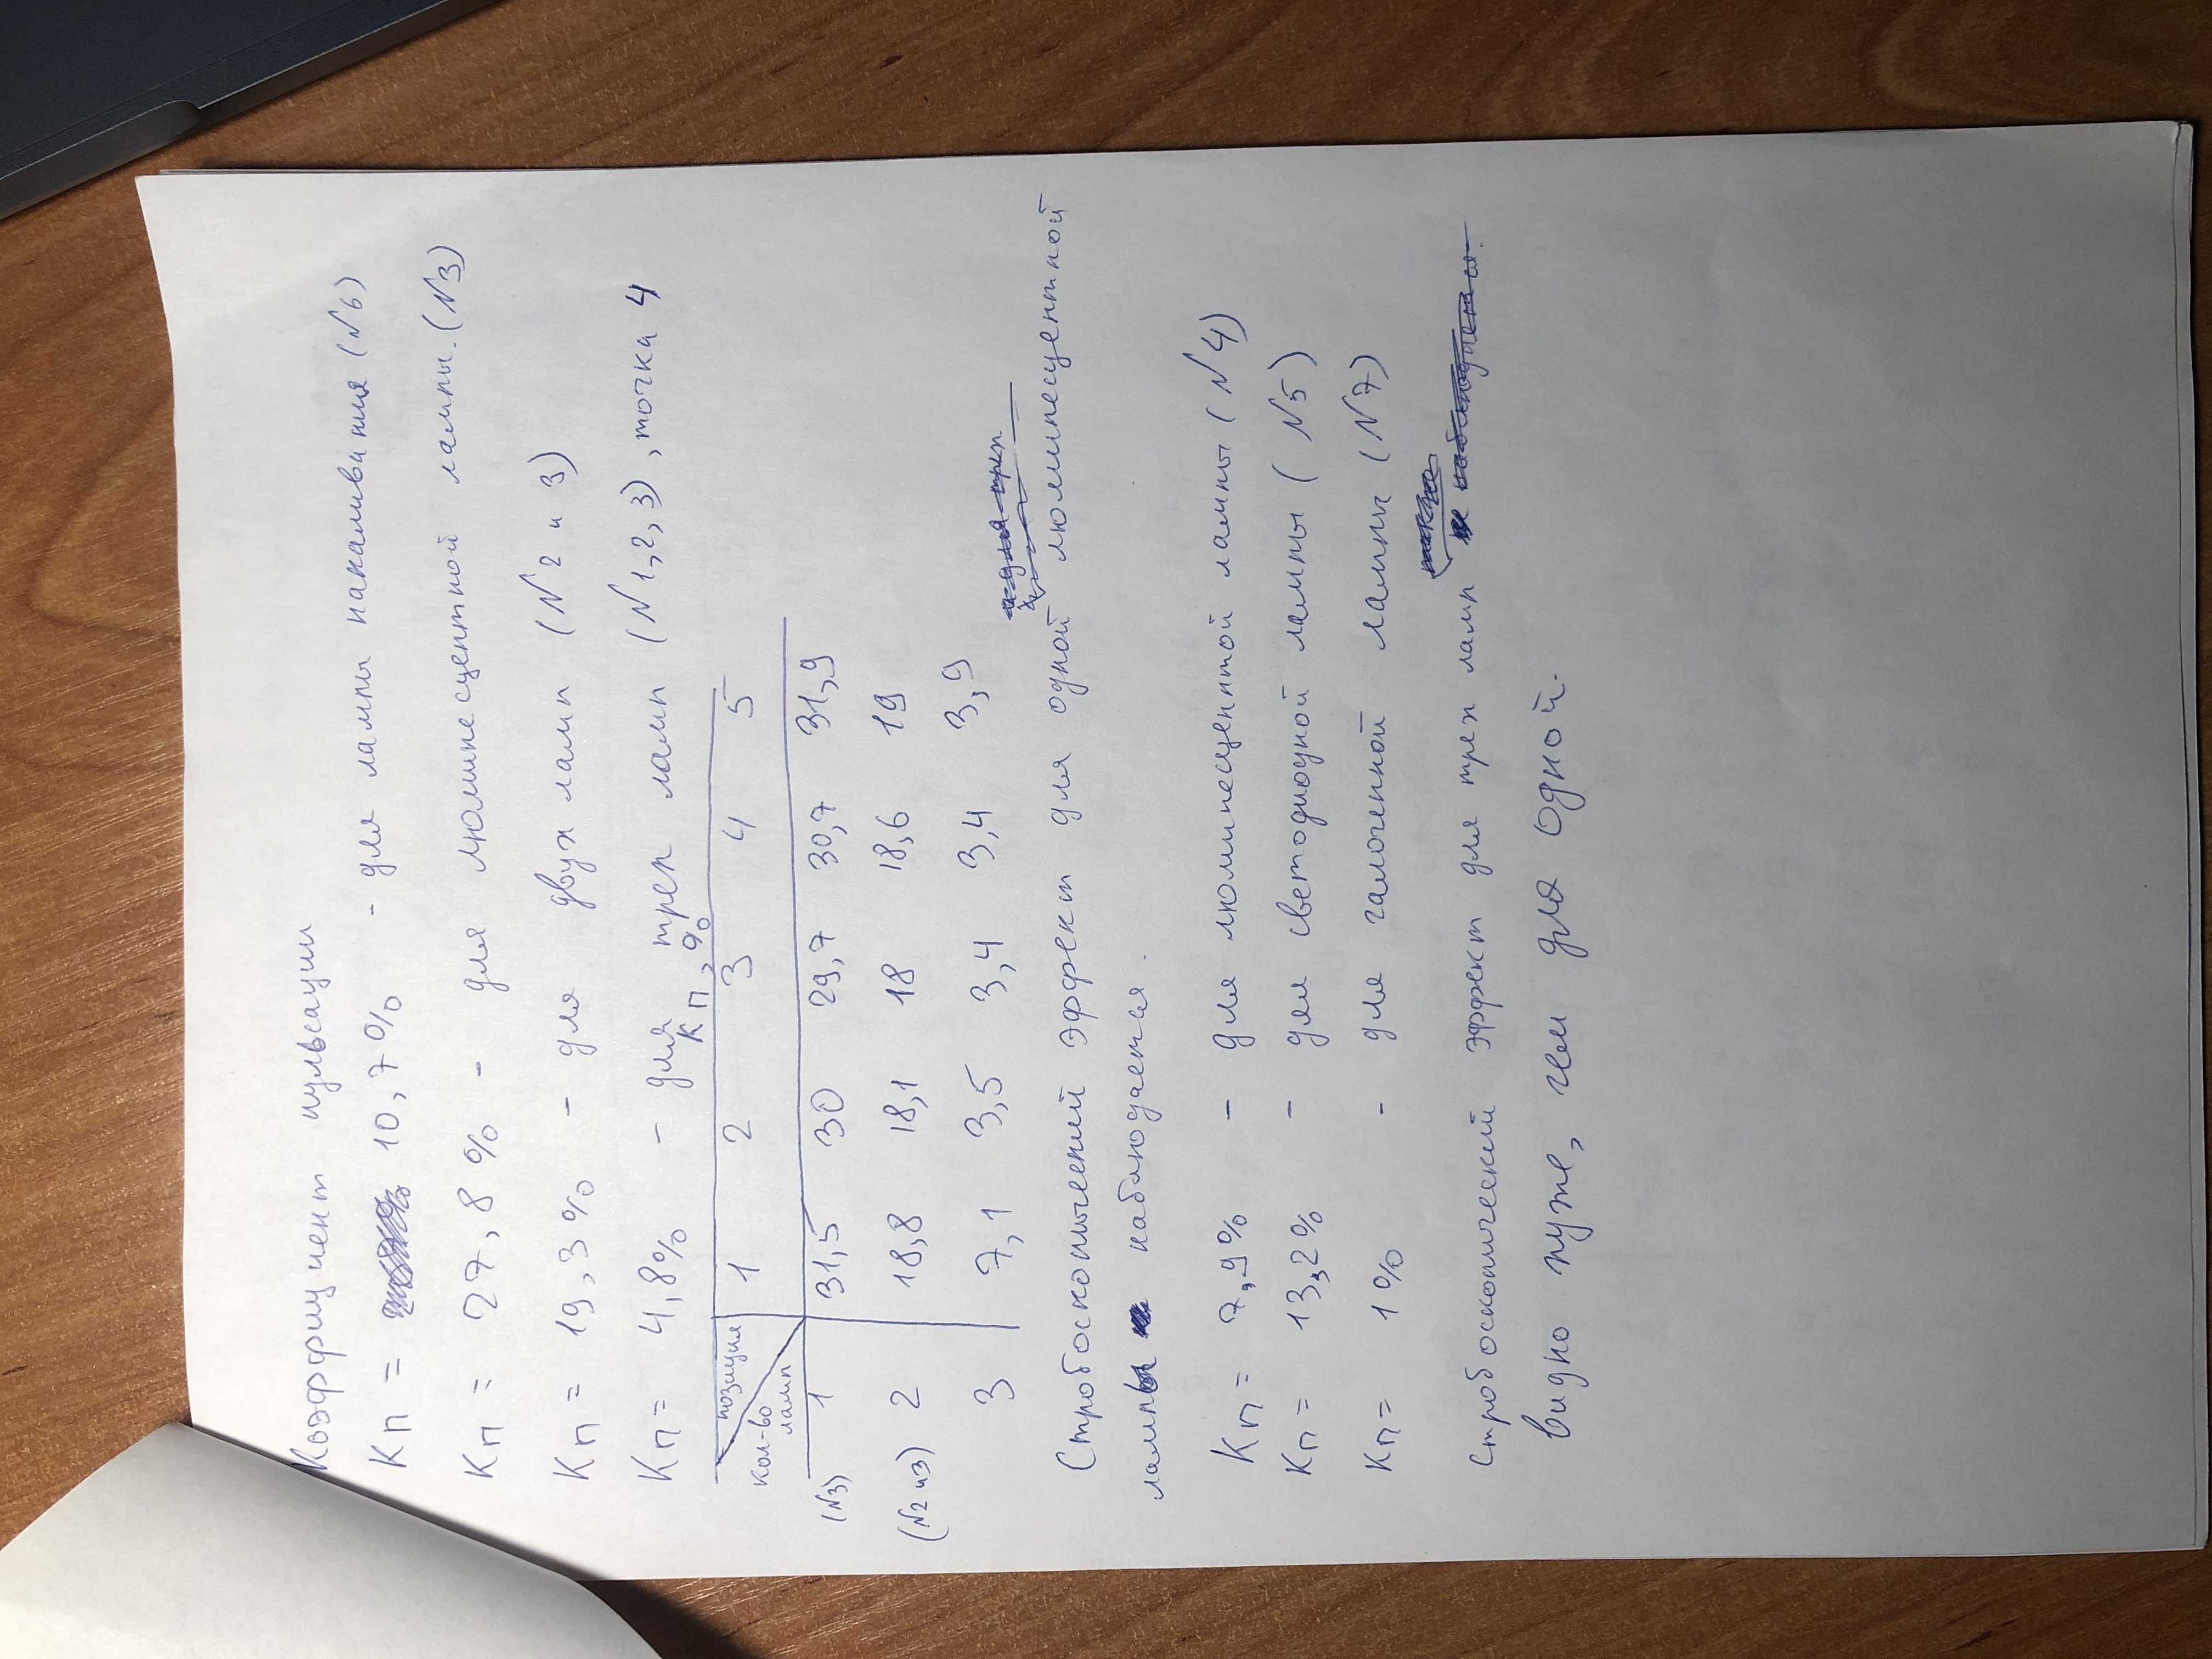 Коэффициент пульсации
Кп = 10,7% - для лампы накаливания (№6)
Кп = 27,8% - для люминесцентной лампы. (№3)
Кп = 19,3% - для двух ламп (№2 и 3)
Кп = 4,8% - для трех ламп (№1,2,3), точка 4
Кп, %
позиция 1 2 3 4 5
кол-во
ламп
(№3) 1 31,5 30 29,7 30,7 31,9
(№2 и 3) 2 18,8 18,1 18 18,6 19
3 7,1 3,5 3,4 3,4 3,9
и для трех
Стробоскопический эффект для одной люминесцентной
лампы наблюдается.
Кп = 7,9% - для люминесцентной лампы (№4)
Кп = 13,2% - для светодиодной лампы (№5)
Кп = 1% - для галогенной лампы (№7)
также
Стробоскопический эффект для трех ламп не наблюдается.
видно хуже, чем для одной.